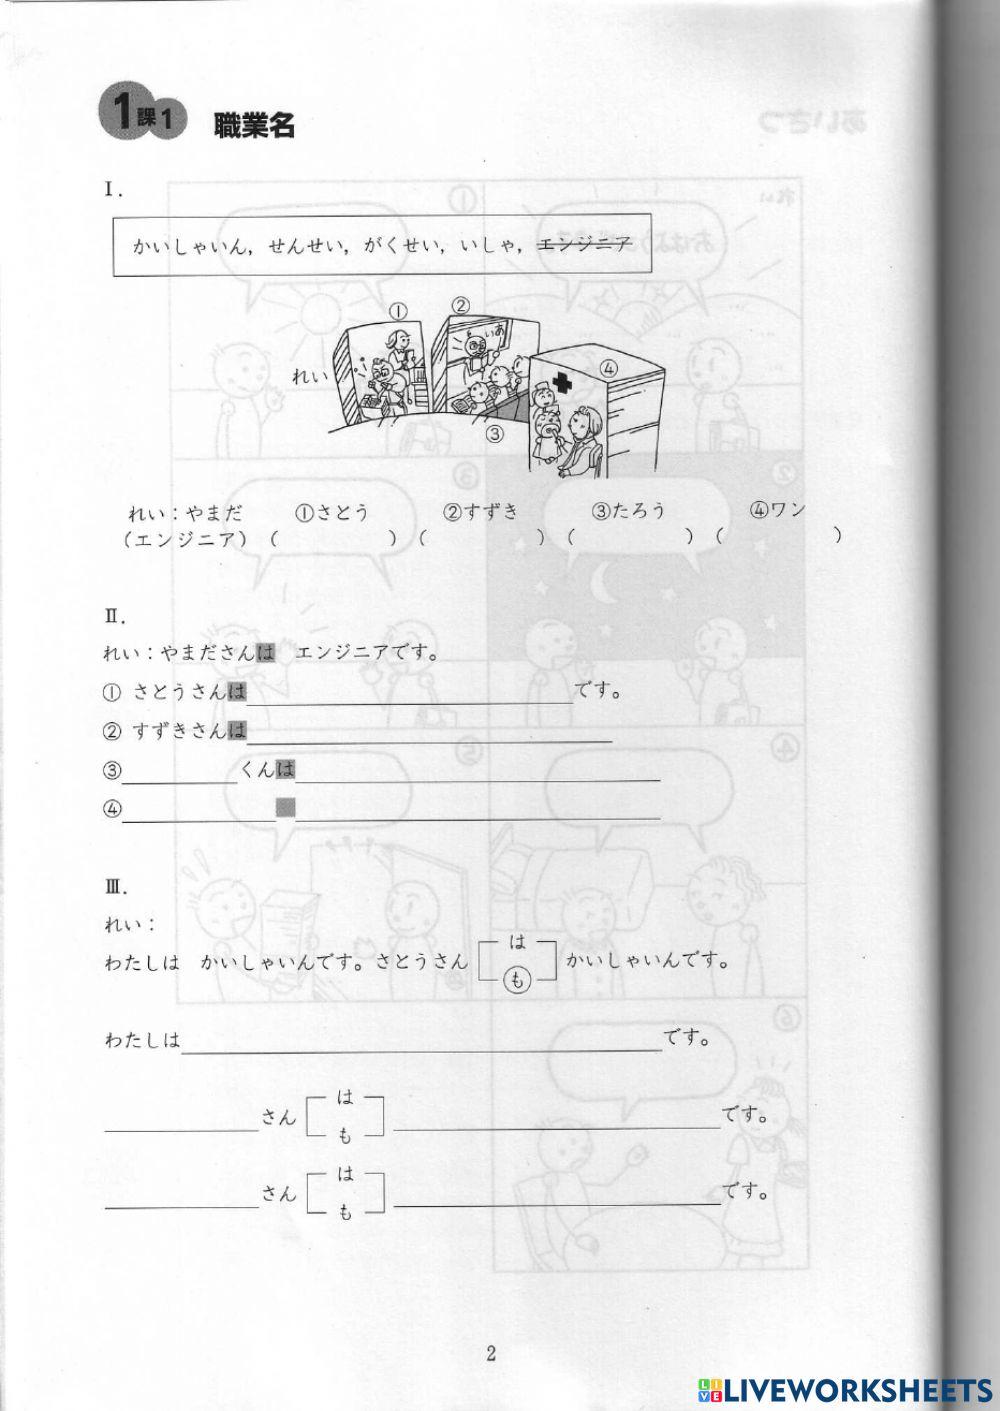 1課1 職業名
あいさつ
Ⅰ.
れい
①
かいしゃいん, せんせい, がくせい, いしゃ, エンジニア
① ②
いあ
④
れい
③
③ ②
れい:やまだ ①さとう ②すずき ③たろう ④ワン
(エンジニア) ( ) ( ) ( ) ( )
Ⅱ.
れい:やまださんは エンジニアです。
① さとうさんは です。
② すずきさんは
⑤ ④
③ くんは
④
Ⅲ.
れい:
わたしは かいしゃいんです。さとうさん は も かいしゃいんです。
⑥
わたしは です。
さん は も です。
さん は も です。
2
LIVE LIVEWORKSHEETS